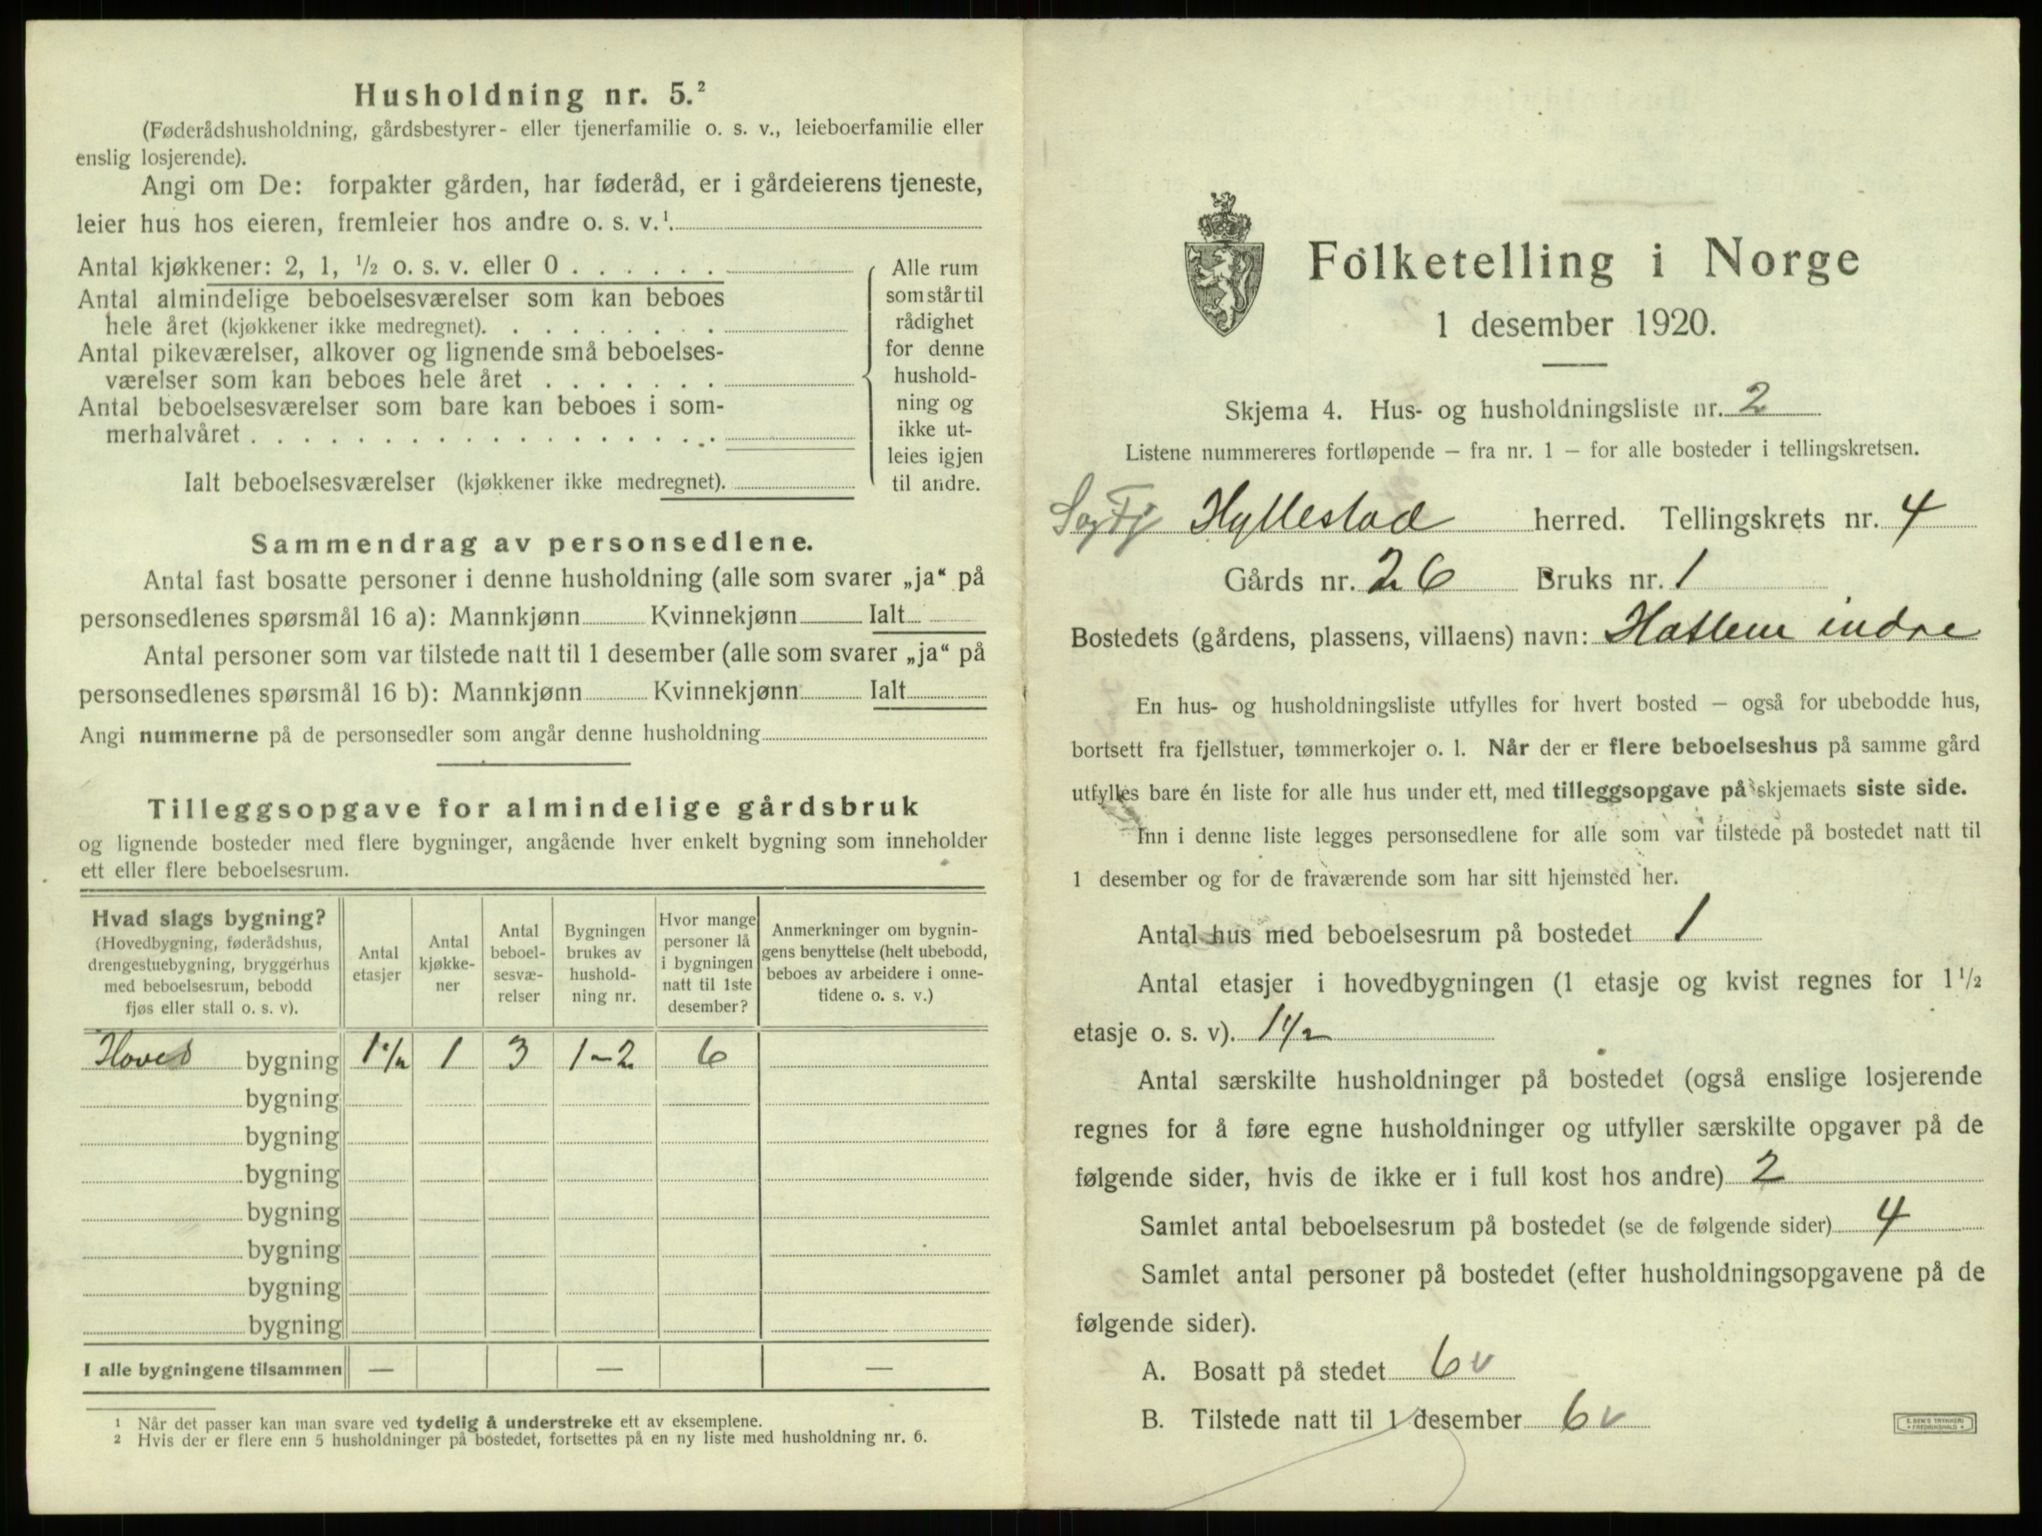 Husholdning nr. 5.²
(Føderådshusholdning, gårdsbestyrer- eller tjenerfamilie o. s. v., leieboerfamilie eller
enslig losjerende).
Angi om De: forpakter gården, har føderåd, er i gårdeierens tjeneste,
leier hus hos eieren, fremleier hos andre o. s. v.¹
Antal kjøkkener: 2, 1, ½ o. s. v. eller 0
Antal almindelige beboelsesværelser som kan beboes
hele året (kjøkkener ikke medregnet).
Antal pikeværelser, alkover og lignende små beboelses-
værelser som kan beboes hele året
Antal beboelsesværelser som bare kan beboes i som-
merhalvåret
Ialt beboelsesværelser (kjøkkener ikke medregnet).
Alle rum
som står til
rådighet
for denne
hushold-
ning og
ikke ut-
leies igjen
til andre.
Sammendrag av personsedlene.
Antal fast bosatte personer i denne husholdning (alle som svarer „ja“ på
personsedlenes spørsmål 16 a): Mannkjønn Kvinnekjønn Ialt
Antal personer som var tilstede natt til 1 desember (alle som svarer „ja“ på
personsedlenes spørsmål 16 b): Mannkjønn Kvinnekjønn Ialt
Angi nummerne på de personsedler som angår denne husholdning
Tilleggsopgave for almindelige gårdsbruk
og lignende bosteder med flere bygninger, angående hver enkelt bygning som inneholder
ett eller flere beboelsesrum.
Hvad slags bygning?
(Hovedbygning, føderådshus,
drengestuebygning, bryggerhus
med beboelsesrum, bebodd
fjøs eller stall o. s. v).
Antal
etasjer
Antal
kjøkke-
ner
Antal
beboel-
sesvæ-
relser
Bygningen
brukes av
hushold-
ning nr.
Hvor mange
personer lå
i bygningen
natt til 1ste
desember?
Anmerkninger om bygnin-
gens benyttelse (helt ubebodd,
beboes av arbeidere i onne-
tidene o. s. v.)
Hoved bygning 1½ 1 3 1-2 6
bygning
bygning
bygning
bygning
bygning
bygning
bygning
I alle bygningene tilsammen — — —
¹ Når det passer kan man svare ved tydelig å understreke ett av eksemplene.
² Hvis der er flere enn 5 husholdninger på bostedet, fortsettes på en ny liste med husholdning nr. 6.
Folketelling i Norge
1 desember 1920.
Skjema 4. Hus- og husholdningsliste nr. 2
Listene nummereres fortløpende – fra nr. 1 – for alle bosteder i tellingskretsen.
SogFj Hyllestad herred. Tellingskrets nr. 4
Gårds nr. 26 Bruks nr. 1
Bostedets (gårdens, plassens, villaens) navn: Hatlem indre
En hus- og husholdningsliste utfylles for hvert bosted – også for ubebodde hus,
bortsett fra fjellstuer, tømmerkojer o. l. Når der er flere beboelseshus på samme gård
utfylles bare én liste for alle hus under ett, med tilleggsopgave på skjemaets siste side.
Inn i denne liste legges personsedlene for alle som var tilstede på bostedet natt til
1 desember og for de fraværende som har sitt hjemsted her.
Antal hus med beboelsesrum på bostedet 1
Antal etasjer i hovedbygningen (1 etasje og kvist regnes for 1½
etasje o. s. v). 1½
Antal særskilte husholdninger på bostedet (også enslige losjerende
regnes for å føre egne husholdninger og utfyller særskilte opgaver på de
følgende sider, hvis de ikke er i full kost hos andre) 2
Samlet antal beboelsesrum på bostedet (se de følgende sider) 4
Samlet antal personer på bostedet (efter husholdningsopgavene på de
følgende sider).
A. Bosatt på stedet 6 v
B. Tilstede natt til 1 desember 6 v